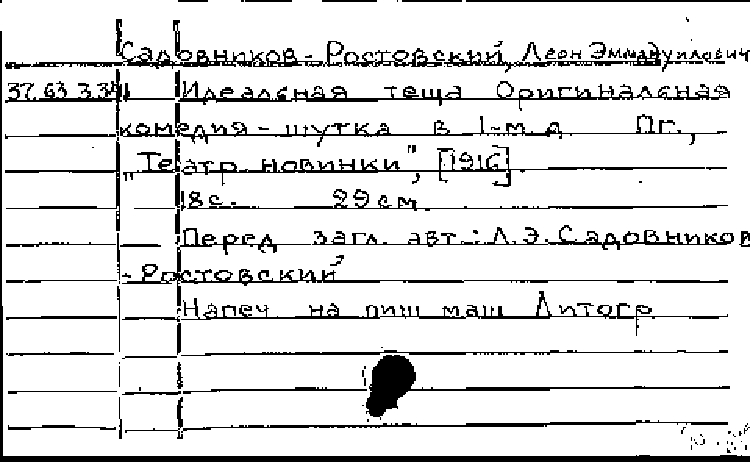 Садовников-Ростовский, Леон Эммануилович
37.63.3.341 Идеальная теща Оригинальная
комедия-шутка в 1-м д. Пг.,
„Театр. новинки", [1916].
18с. 29см.
Перед загл. авт.: Л.Э.Садовников
-Ростовский
Напеч на пиш маш Литогр